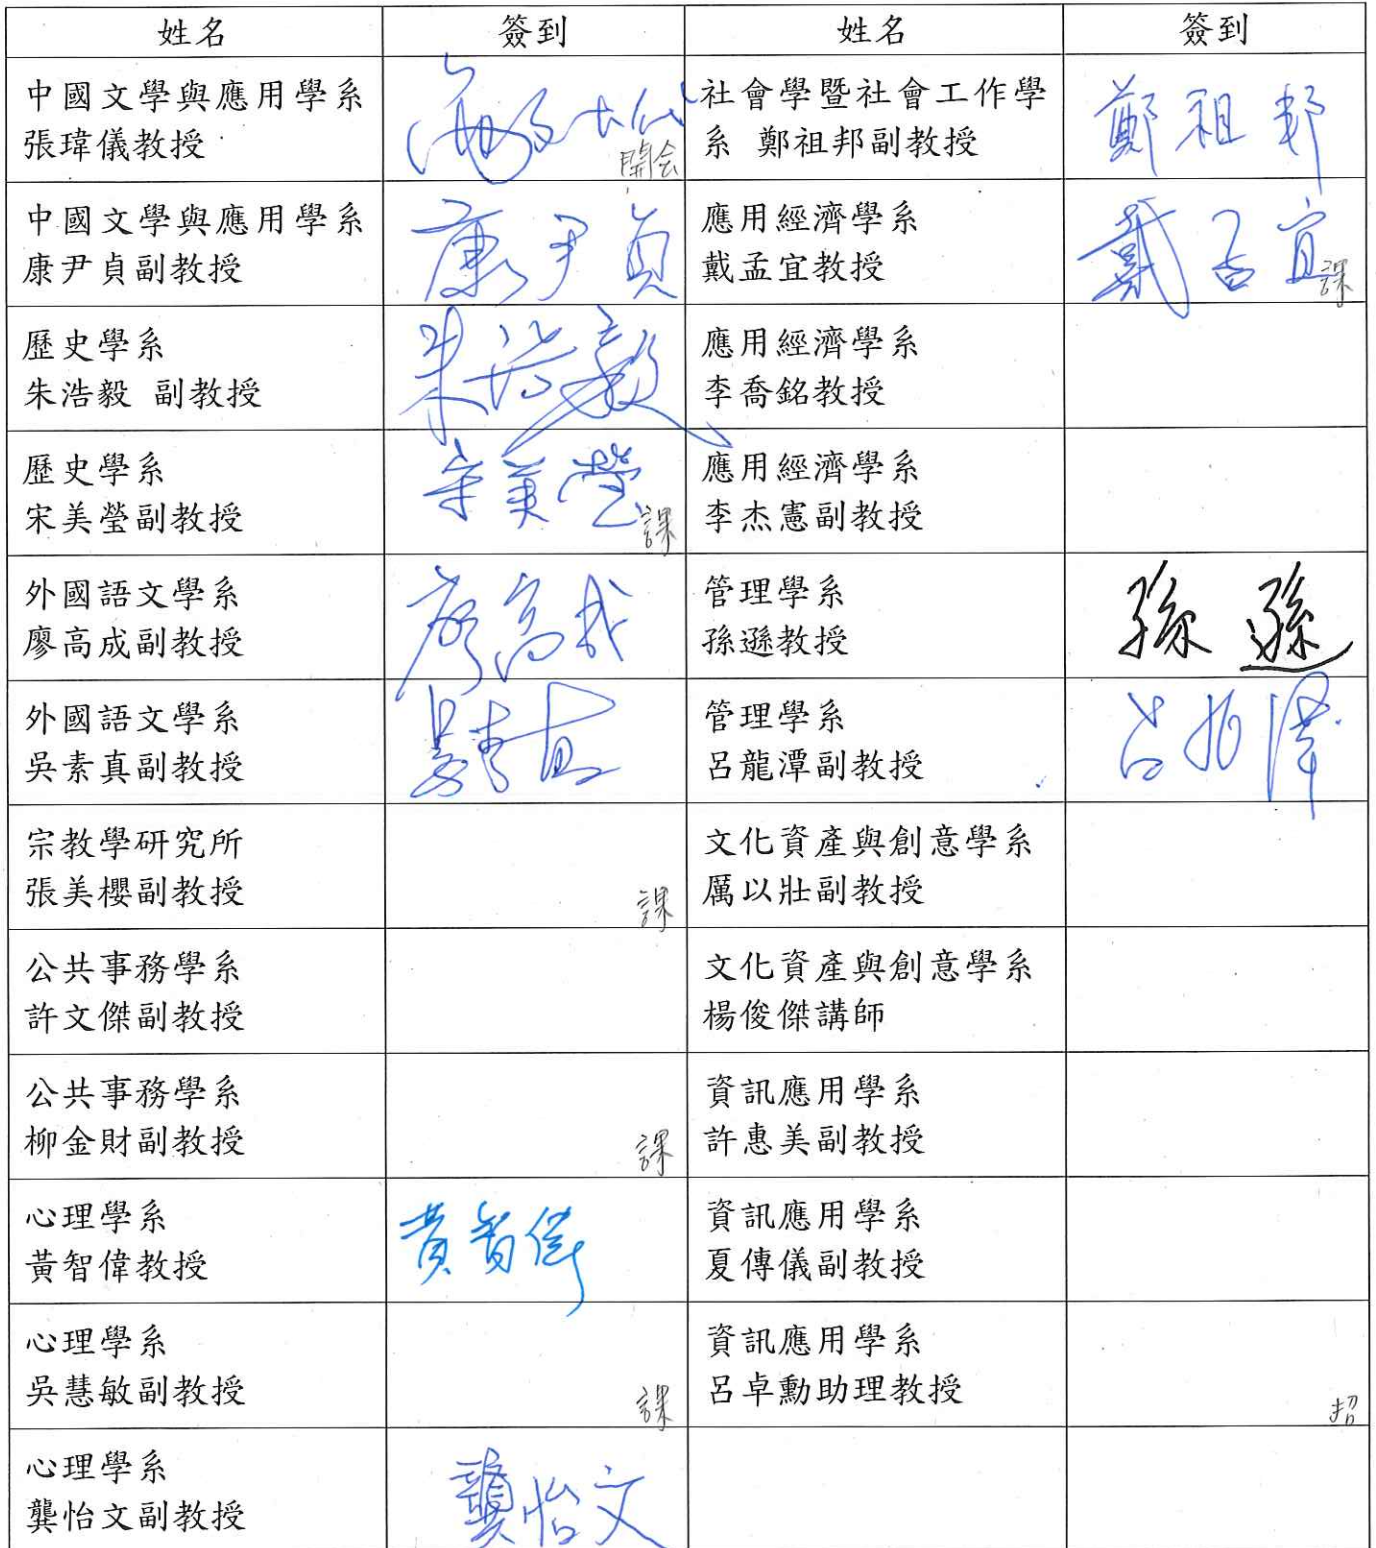 姓名 簽到 姓名 簽到
中國文學與應用學系
張瑋儀教授
開会
社會學暨社會工作學
系 鄭祖邦副教授
鄭祖邦
中國文學與應用學系
康尹貞副教授
康尹貞
應用經濟學系
戴孟宜教授
戴孟宜
課
歷史學系
朱浩毅 副教授
朱浩毅
應用經濟學系
李喬銘教授
歷史學系
宋美瑩副教授
宋美瑩
課
應用經濟學系
李杰憲副教授
外國語文學系
廖高成副教授
廖高成
管理學系
孫遜教授
孫遜
外國語文學系
吳素真副教授
吳素真
管理學系
呂龍潭副教授
宗教學研究所
張美櫻副教授
課
文化資產與創意學系
厲以壯副教授
公共事務學系
許文傑副教授
文化資產與創意學系
楊俊傑講師
公共事務學系
柳金財副教授
課
資訊應用學系
許惠美副教授
心理學系
黃智偉教授
黃智偉
資訊應用學系
夏傳儀副教授
心理學系
吳慧敏副教授
課
資訊應用學系
呂卓勳助理教授
招
心理學系
龔怡文副教授
龔怡文